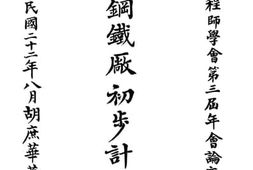 程師學會第三屆年會論文
鋼鐵厰初步計
民國二十二年八月胡庶華